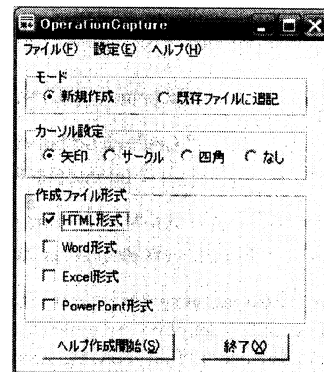 OperationCapture
ファイル(F) 設定(E) ヘルプ(H)
モード
新規作成 既存ファイルに追記
カーソル設定
矢印 サークル 四角 なし
作成ファイル形式
HTML形式
Word形式
Excel形式
PowerPoint形式
ヘルプ作成開始(S) 終了(X)